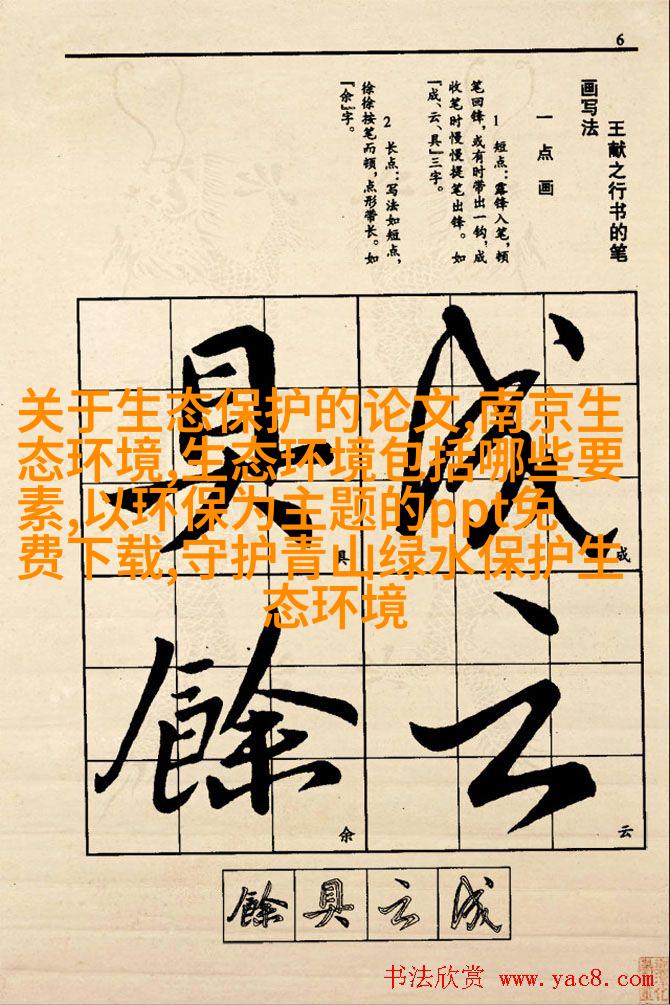 6
王献之行书的笔
画写法
一 点 画
1 短点：露锋入笔，顿
笔回锋，或有时带出一钩，成
收笔时慢慢提笔出锋。如
「成、云、具」三字。
2 长点：写法如短点，
徐徐按笔而顿，点形带长。如
「余」字。
成
具
成
具
关于生态保护的论文,南京生
态环境,生态环境包括哪些要
素,以环保为主题的ppt免
费下载,守护青山绿水保护生
态环境
云
餘
云
余
餘具云成
书法欣赏 www.yac8.com